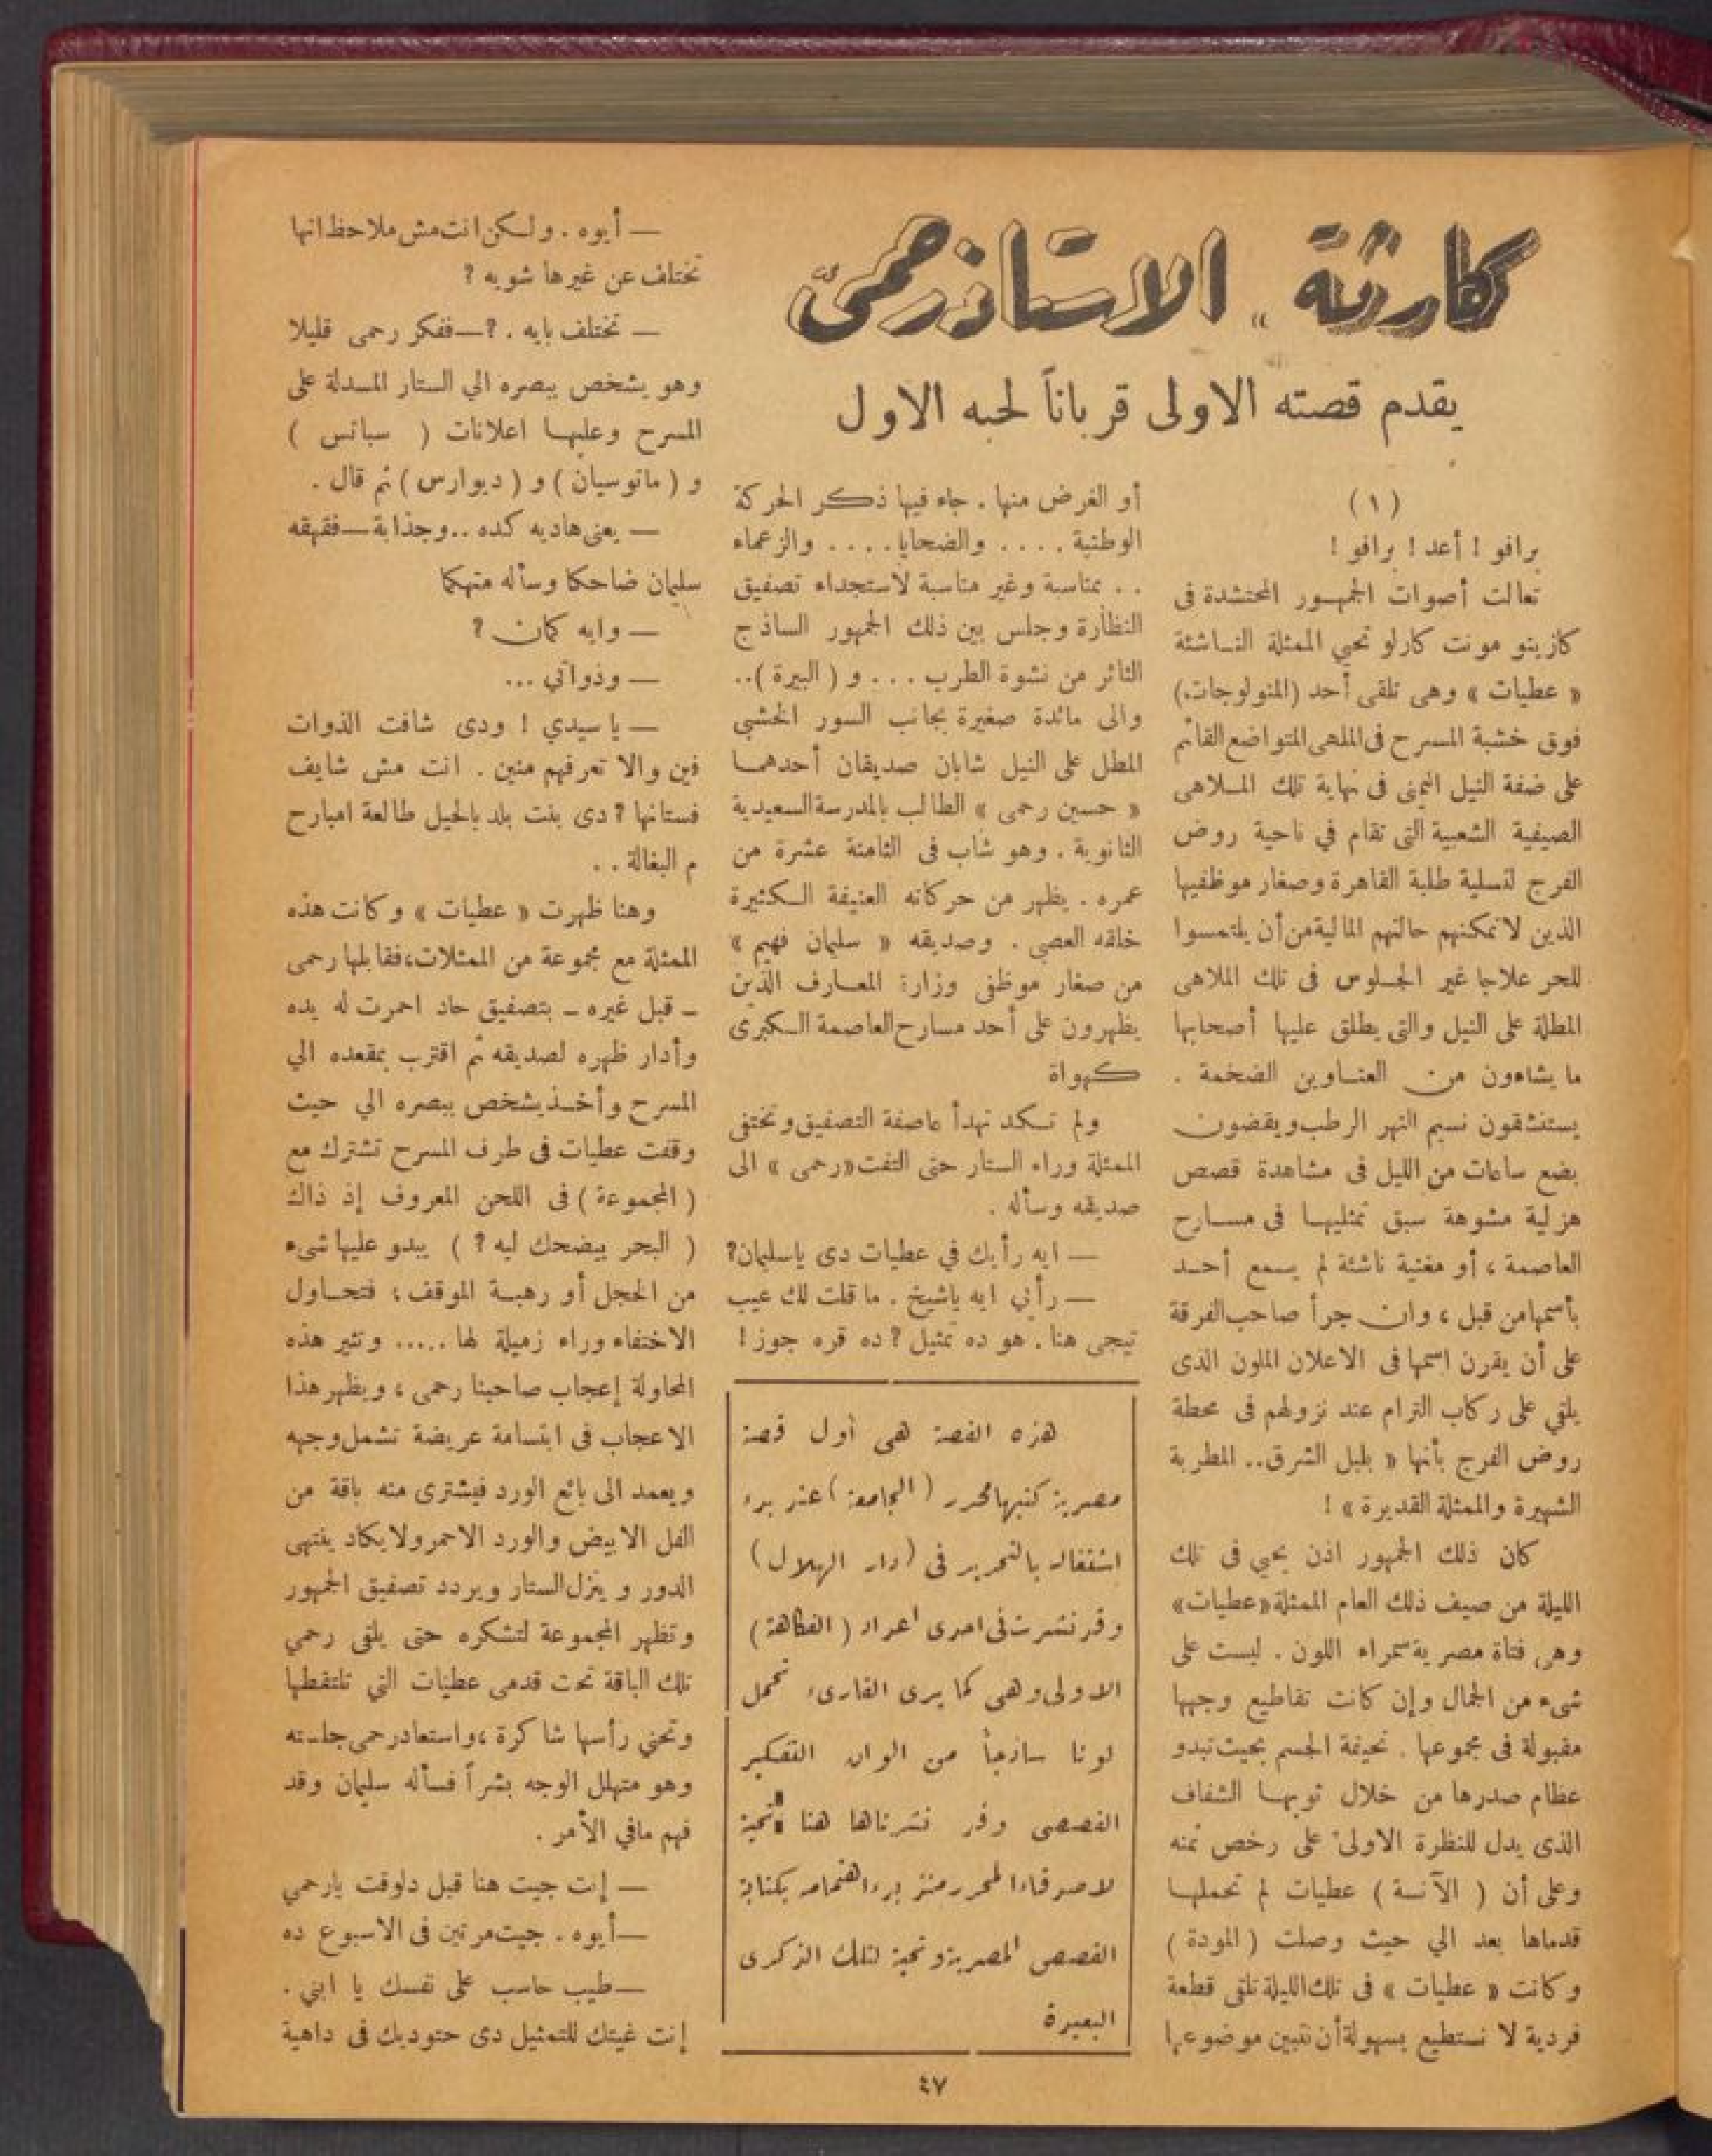 كارثة „ الاستاذ رحمى “
يقدم قصته الاولى قرباناً لحبه الاول
(١)
برافو ! أعد ! برافو !
تعالت أصوات الجمهور المحتشدة فى
كازينو مونت كارلو تحيي الممثلة الناشئة
« عطيات » وهى تلقى أحد (المنولوجات)
فوق خشبة المسرح فى الملهى المتواضع القائم
على ضفة النيل اليمنى فى نهاية تلك الملاهى
الصيفية الشعبية التى تقام في ناحية روض
الفرج لتسلية طلبة القاهرة وصغار موظفيها
الذين لا تمكنهم حالتهم المالية من أن يلتمسوا
للحر علاجا غير الجلوس فى تلك الملاهى
المطلة على النيل والتى يطلق عليها أصحابها
ما يشاءون من العناوين الضخمة .
يستنشقون نسيم النهر الرطب ويقضون
بضع ساعات من الليل فى مشاهدة قصص
هزلية مشوهة سبق تمثليها فى مسارح
العاصمة ، أو مغنية ناشئة لم يسمع أحد
بأسمها من قبل ، وان جرأ صاحب الفرقة
على أن يقرن اسمها فى الاعلان الملون الذى
يلقي على ركاب الترام عند نزولهم فى محطة
روض الفرج بأنها « بلبل الشرق.. المطربة
الشهيرة والممثلة القديرة » !
كان ذلك الجمهور اذن يحيي فى تلك
الليلة من صيف ذلك العام الممثلة «عطيات»
وهى فتاة مصرية سمراء اللون . ليست على
شىء من الجمال وإن كانت تقاطيع وجهها
مقبولة فى مجموعها . نحيفة الجسم بحيث تبدو
عظام صدرها من خلال ثوبها الشفاف
الذى يدل للنظرة الاولى على رخص ثمنه
وعلى أن ( الآنسة ) عطيات لم تحملها
قدماها بعد الي حيث وصلت ( المودة )
وكانت « عطيات » فى تلك الليلة تلقى قطعة
فردية لا نستطيع بسهولة أن نتبين موضوعها
أو الغرض منها . جاء فيها ذكر الحركة
الوطنية .... والضحايا .... والزعماء
.. بمناسبة وغير مناسبة لاستجداء تصفيق
النظارة وجلس بين ذلك الجمهور الساذج
الثائر من نشوة الطرب ... و ( البيرة )..
والى مائدة صغيرة بجانب السور الخشبى
المطل على النيل شابان صديقان أحدهما
« حسين رحمى » الطالب بالمدرسة السعيدية
الثانوية . وهو شاب فى الثامنة عشرة من
عمره . يظهر من حركاته العنيفة الكثيرة
خلقه العصبى . وصديقه « سليمان فهيم »
من صغار موظفى وزارة المعارف الذين
يظهرون على أحد مسارح العاصمة الكبرى
كهواة
ولم تكد تهدأ عاصفة التصفيق وتختفى
الممثلة وراء الستار حتى التفت «رحمى » الى
صديقه وسأله .
— ايه رأيك في عطيات دى ياسليمان؟
— رأيي ايه ياشيخ . ما قلت لك عيب
تيجى هنا . هو ده تمثيل ؟ ده قره جوز !
هذه القصة هى أول قصة
مصرية كتبها محرر ( الجامعة ) عند بدء
اشتغاله بالتحرير فى ( دار الهلال )
وقد نشرت فى احدى أعداد ( الفكاهة )
الاولى وهى كما يرى القارىء تحمل
لونا ساذجاً من الوان التفكير
القصصى وقد نشرناها هنا تحية
لاصدقاء المحرر منذ بدء اهتمامه بكتابة
القصص المصرية وتحية لتلك الذكرى
البعيدة
— أيوه . ولكن انت مش ملاحظ انها
تختلف عن غيرها شويه ؟
— تختلف بايه . ؟ — ففكر رحمى قليلا
وهو يشخص ببصره الي الستار المسدلة على
المسرح وعليها اعلانات ( سباتس )
و ( ماتوسيان ) و ( ديوارس ) ثم قال .
— يعنى هاديه كده .. وجذابة — فقهقه
سليمان ضاحكا وسأله متهكما
— وايه كمان ؟
— وذواتي ...
— يا سيدي ! ودى شافت الذوات
فين والا تعرفهم منين . انت مش شايف
فستانها ؟ دى بنت بلد بالحيل طالعة امبارح
م البغالة ..
وهنا ظهرت « عطيات » وكانت هذه
الممثلة مع مجموعة من الممثلات، فقابلها رحمى
ـ قبل غيره ـ بتصفيق حاد احمرت له يده
وأدار ظهره لصديقه ثم اقترب بمقعده الي
المسرح وأخذ يشخص ببصره الي حيث
وقفت عطيات فى طرف المسرح تشترك مع
( المجموعة ) فى اللحن المعروف إذ ذاك
( البحر بيضحك ليه ؟ ) يبدو عليها شىء
من الخجل أو رهبة الموقف ؛ فتحاول
الاختفاء وراء زميلة لها ..... وتثير هذه
المحاولة إعجاب صاحبنا رحمى ، ويظهر هذا
الاعجاب فى ابتسامة عريضة تشمل وجهه
ويعمد الى بائع الورد فيشترى منه باقة من
الفل الابيض والورد الاحمر ولا يكاد ينتهى
الدور وينزل الستار ويردد تصفيق الجمهور
وتظهر المجموعة لتشكره حتى يلقى رحمي
تلك الباقة تحت قدمى عطيات التي تلتقطها
وتحني رأسها شاكرة ، واستعاد رحمى جلسته
وهو متهلل الوجه بشراً فسأله سليمان وقد
فهم مافي الأمر .
— إنت جيت هنا قبل دلوقت يارحمي
— أيوه . جيت مرتين فى الاسبوع ده
— طيب حاسب على نفسك يا ابني .
إنت غيتك للتمثيل دى حتوديك فى داهية
٤٧